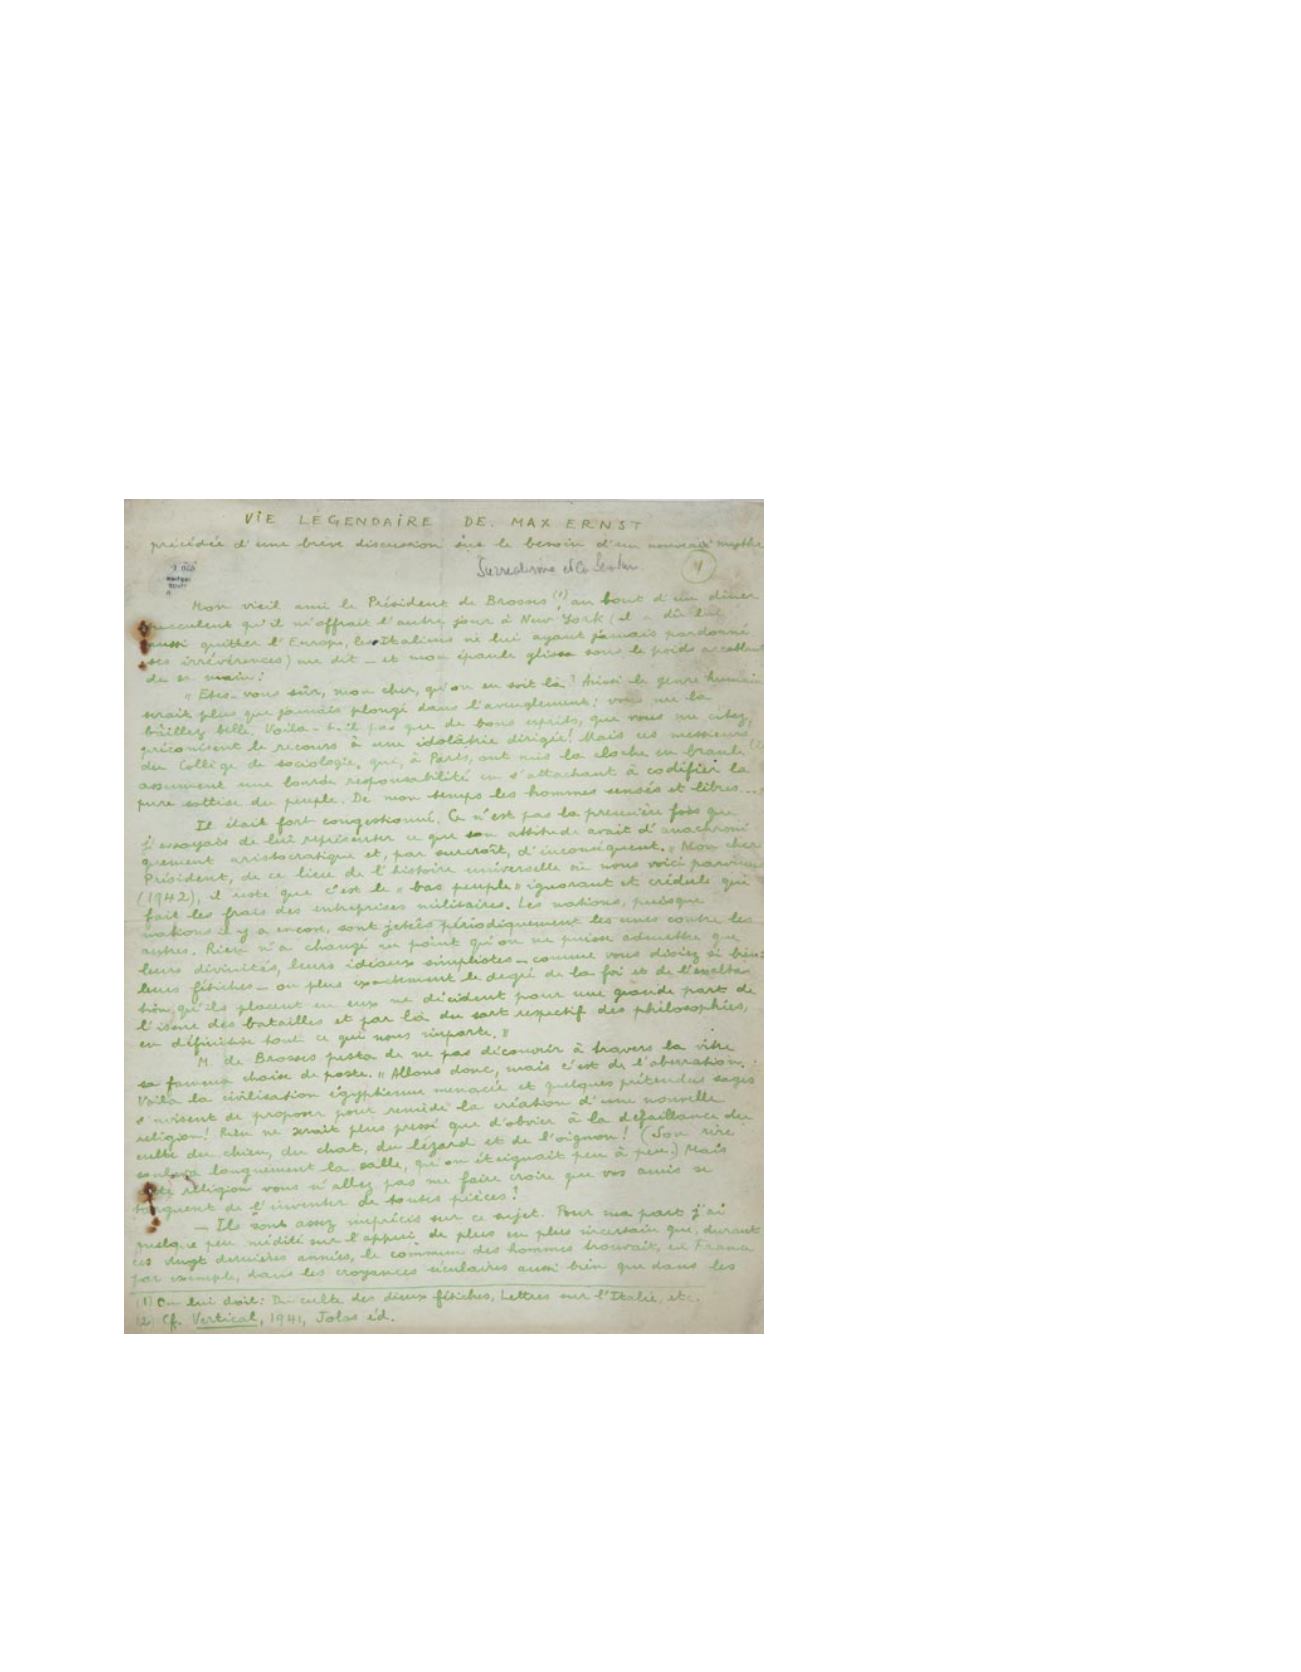 VIE LÉGENDAIRE DE MAX ERNST
précédée d'une brève discussion sur le besoin d'un nouveau mythe
Surréalisme et la
1
Mon vieil ami le Président de Brosses (1), au bout d'un dîner
succulent qu'il m'offrait l'autre jour à New York (il a dû lui
aussi quitter l'Europe, les Italiens ne lui ayant jamais pardonné
ses irrévérences) me dit – et mon épaule glissa sous le poids accablant
de sa main :
" Êtes-vous sûr, mon cher, qu'on en soit là ? Ainsi le genre humain
serait plus que jamais plongé dans l'aveuglement : vous me la
bâillez belle. Voilà-t-il pas que de bons esprits, que vous me citez,
préconisent le recours à une idolâtrie dirigée ! Mais ces messieurs
du Collège de sociologie, qui, à Paris, ont mis la cloche en branle (2)
assument une lourde responsabilité en s'attachant à codifier la
pure sottise du peuple. De mon temps les hommes sensés et libres...
Il était fort congestionné. Ce n'est pas la première fois que
j'essayais de lui représenter ce que son attitude avait d'anachroni-
quement aristocratique et, par surcroît, d'inconséquent. " Mon cher
Président, de ce lieu de l'histoire universelle où nous voici parvenus
(1942), il reste que c'est le " bas peuple " ignorant et crédule qui
fait les frais des entreprises militaires. Les nations, puisque
nations il y a encore, sont jetées périodiquement les unes contre les
autres. Rien n'a changé au point qu'on ne puisse admettre que
leurs divinités, leurs idéaux simplistes – comme vous disiez si bien :
leurs fétiches – ou plus exactement le degré de la foi et de l'exalta-
tion qu'ils placent en eux ne décident pour une grande part de
l'issue des batailles et par là du sort respectif des philosophies,
en définitive tout ce qui nous importe. "
M. de Brosses pesta de ne pas découvrir à travers la vitre
sa fameuse chaise de poste. " Allons donc, mais c'est de l'aberration.
Voilà la civilisation égyptienne menacée et quelques prétendus sages
s'avisent de proposer pour remède la création d'une nouvelle
religion ! Rien ne serait plus pressé que d'obvier à la défaillance du
culte du chien, du chat, du lézard et de l'oignon ! (Son rire
souleva longuement la salle, qu'on éteignait peu à peu.) Mais
cette religion vous n'allez pas me faire croire que vos amis se
targuent de l'inventer de toutes pièces !
– Ils sont assez imprécis sur ce sujet. Pour ma part j'ai
quelque peu médité sur l'appui de plus en plus incertain que, durant
ces vingt dernières années, le commun des hommes trouvait, en France
par exemple, dans les croyances séculaires aussi bien que dans les
(1) On lui doit : Du culte des dieux fétiches, Lettres sur l'Italie, etc.
(2) Cf. Vertical, 1941, Jolas éd.